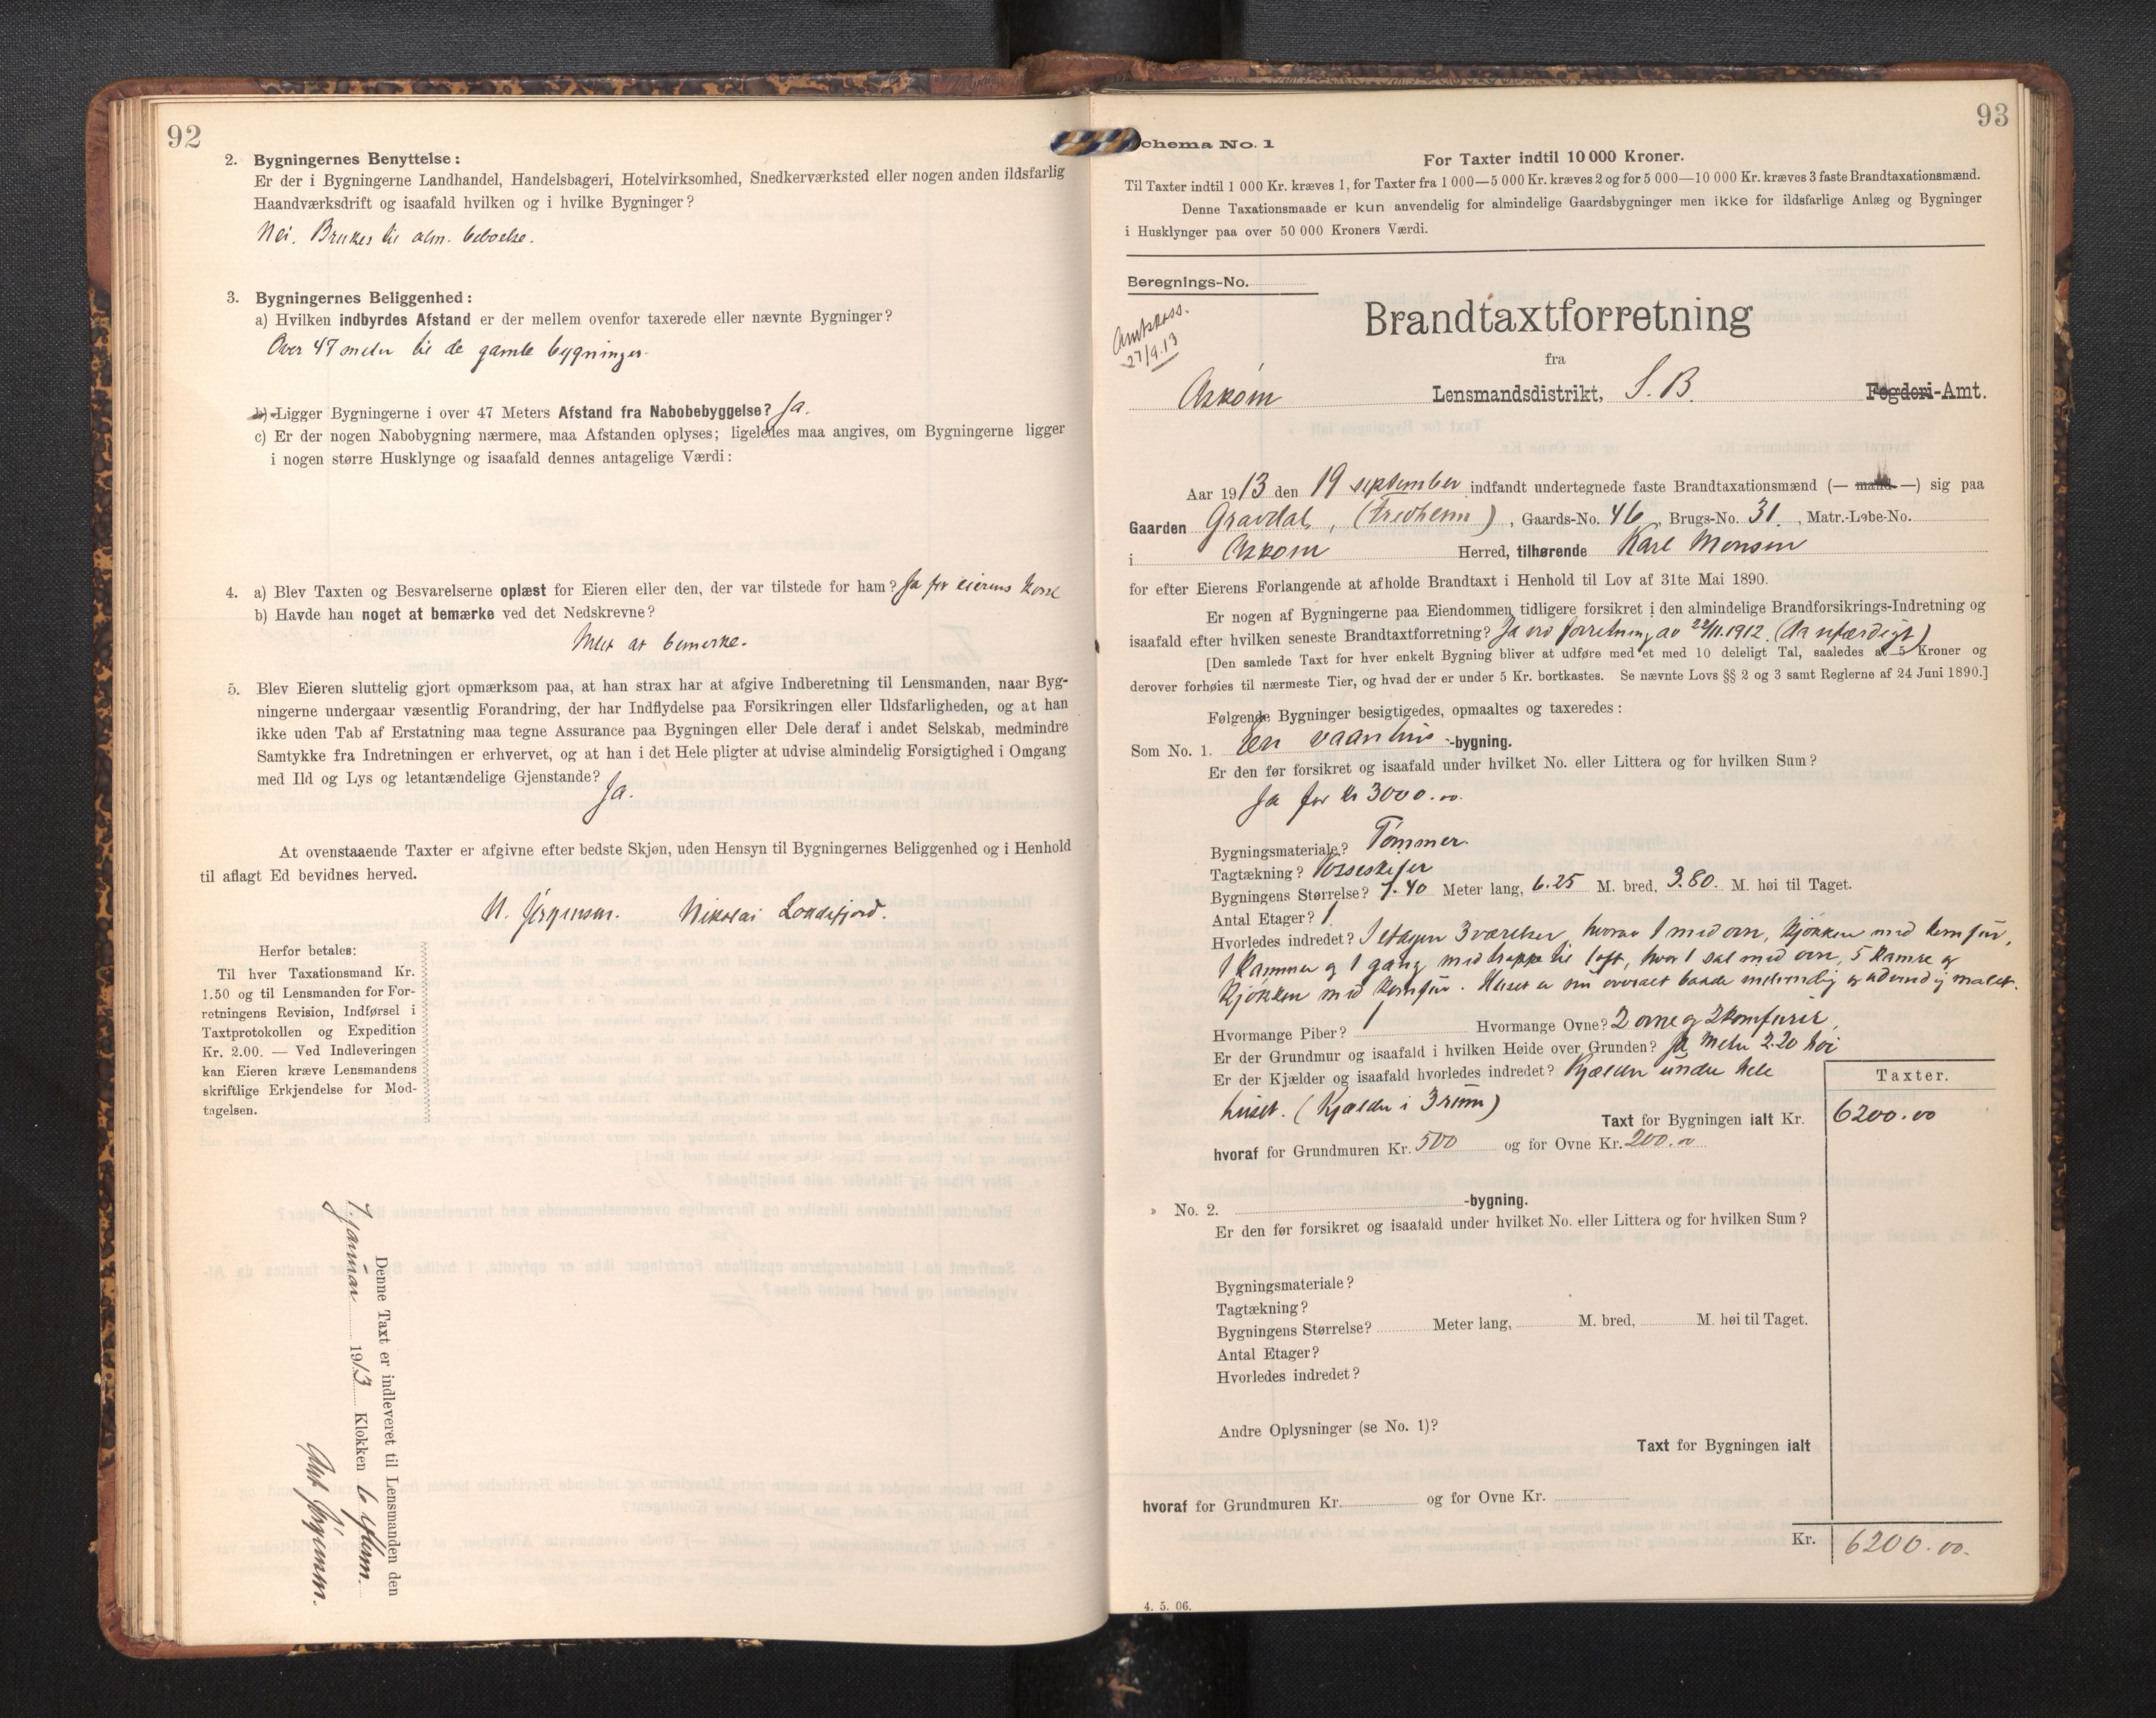 92
2. Bygningernes Benyttelse:
Er der i Bygningerne Landhandel, Handelsbageri, Hotelvirksomhed, Snedkerværksted eller nogen anden ildsfarlig
Haandværksdrift og isaafald hvilken og i hvilke Bygninger?
Nei. Brukes til alm. beboelse.
3. Bygningernes Beliggenhed:
a) Hvilken indbyrdes Afstand er der mellem ovenfor taxerede eller nævnte Bygninger?
Over 47 meter til de gamle bygninger.
b) Ligger Bygningerne i over 47 Meters Afstand fra Nabobebyggelse? Ja.
c) Er der nogen Nabobygning nærmere, maa Afstanden oplyses; ligeledes maa angives, om Bygningerne ligger
i nogen større Husklynge og isaafald dennes antagelige Værdi:
4. a) Blev Taxten og Besvarelserne oplæst for Eieren eller den, der var tilstede for ham? Ja for eierens kone
b) Havde han noget at bemærke ved det Nedskrevne?
Intet at bemerke.
5. Blev Eieren sluttelig gjort opmærksom paa, at han strax har at afgive Indberetning til Lensmanden, naar Byg-
ningerne undergaar væsentlig Forandring, der har Indflydelse paa Forsikringen eller Ildsfarligheden, og at han
ikke uden Tab af Erstatning maa tegne Assurance paa Bygningen eller Dele deraf i andet Selskab, medmindre
Samtykke fra Indretningen er erhvervet, og at han i det Hele pligter at udvise almindelig Forsigtighed i Omgang
med Ild og Lys og letantændelige Gjenstande?
Ja.
At ovenstaaende Taxter er afgivne efter bedste Skjøn, uden Hensyn til Bygningernes Beliggenhed og i Henhold
til aflagt Ed bevidnes herved.
N. Jørgensen. Nikolai Loddefjord.
Herfor betales:
Til hver Taxationsmand Kr.
1.50 og til Lensmanden for For-
retningens Revision, Indførsel i
Taxtprotokollen og Expedition
Kr. 2.00. — Ved Indleveringen
kan Eieren kræve Lensmandens
skriftlige Erkjendelse for Mod-
tagelsen.
Denne Taxt er indleveret til Lensmanden den
7 januar 1913 Klokken 6 efterm.
Jørgensen.
93
chema No. 1
For Taxter indtil 10 000 Kroner.
Til Taxter indtil 1 000 Kr. kræves 1, for Taxter fra 1 000—5 000 Kr. kræves 2 og for 5 000—10 000 Kr. kræves 3 faste Brandtaxationsmænd.
Denne Taxationsmaade er kun anvendelig for almindelige Gaardsbygninger men ikke for ildsfarlige Anlæg og Bygninger
i Husklynger paa over 50 000 Kroners Værdi.
Beregnings-No.
Amtskass.
27/9.13
Brandtaxtforretning
fra
Askøen Lensmandsdistrikt, S. B. Fogderi-Amt.
Aar 1913 den 19 september indfandt undertegnede faste Brandtaxationsmænd (— mand —) sig paa
Gaarden Gravdal, (Fredheim), Gaards-No. 46, Brugs-No. 31, Matr.-Løbe-No.
i Askøen Herred, tilhørende Karl Monsen
for efter Eierens Forlangende at afholde Brandtaxt i Henhold til Lov af 31te Mai 1890.
Er nogen af Bygningerne paa Eiendommen tidligere forsikret i den almindelige Brandforsikrings-Indretning og
isaafald efter hvilken seneste Brandtaxtforretning? Ja ved forretning av 22/11.1912. (Da uferdigt)
[Den samlede Taxt for hver enkelt Bygning bliver at udføre med et med 10 deleligt Tal, saaledes at 5 Kroner og
derover forhøies til nærmeste Tier, og hvad der er under 5 Kr. bortkastes. Se nævnte Lovs §§ 2 og 3 samt Reglerne af 24 Juni 1890.]
Følgende Bygninger besigtigedes, opmaaltes og taxeredes:
Som No. 1. En vaanhus-bygning.
Er den før forsikret og isaafald under hvilket No. eller Littera og for hvilken Sum?
Ja for kr 3000.00.
Bygningsmateriale? Tømmer.
Tagtækning? Vosseskifer
Bygningens Størrelse? 7.40 Meter lang, 6.25 M. bred, 3.80. M. høi til Taget.
Antal Etager? 1
Hvorledes indredet? I etagen 3 værelser, hvorav 1 med ovn, kjøkken med komfur,
1 kammer og 1 gang med trappe til loft, hvor 1 sal med ovn, 5 kamre og
kjøkken med komfur. Huset er nu overalt baade indvendig og udvendig malet.
Hvormange Piber? 1 Hvormange Ovne? 2 ovne og 2 komfurer.
Er der Grundmur og isaafald i hvilken Høide over Grunden? Ja Meter 2.20 høi
Er der Kjælder og isaafald hvorledes indredet? Kjælder under hele
huset. (Kjælder i 3 rum)
Taxter.
Taxt for Bygningen ialt Kr. 6200.00
hvoraf for Grundmuren Kr. 500 og for Ovne Kr. 200.00
» No. 2. -bygning.
Er den før forsikret og isaafald under hvilket No. eller Littera og for hvilken Sum?
Bygningsmateriale?
Tagtækning?
Bygningens Størrelse? Meter lang, M. bred, M. høi til Taget.
Antal Etager?
Hvorledes indredet?
Andre Oplysninger (se No. 1)?
Taxt for Bygningen ialt
hvoraf for Grundmuren Kr. og for Ovne Kr.
Kr. 6200.00.
4. 5. 06.